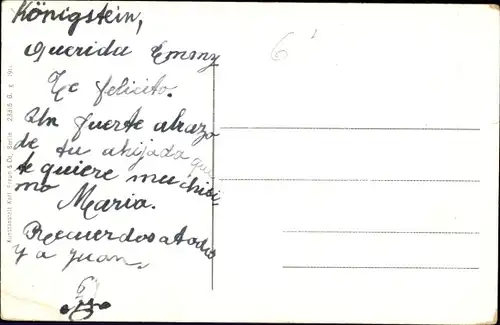 Königstein,
Querida Emmy
Te felicito.
Un fuerte abrazo
de tu ahijada que
te quiere muchisi,
mo
Maria.
Recuerdos a todos
y a Juan.
6
Kunstanstalt Karl Braun & Co., Berlin 23315 G.